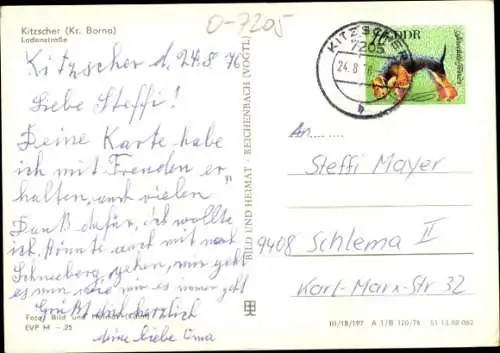 Kitzscher (Kr. Borna)
Ladenstraße
O-7205
Kitzscher d. 24.8.76
Liebe Steffi!
Deine Karte habe
ich mit Freuden er
halten, und vielen
Dank dafür, ich wollte
ich könnte auch mit nach
Schneeberg gehen, nur geht
es nun nie es immer geht
Grüßt dich herzlich
deine liebe Oma
Foto: Bild und Heimat
EVP M -.25
BILD UND HEIMAT · REICHENBACH (VOGTL)
KITZSCHER
7205
24.8.76
b
DDR
An
Steffi Mayer
9408 Schlema II
Karl-Marx-Str 32
III/18/197 A 1/B 120/76 01 13 02 062